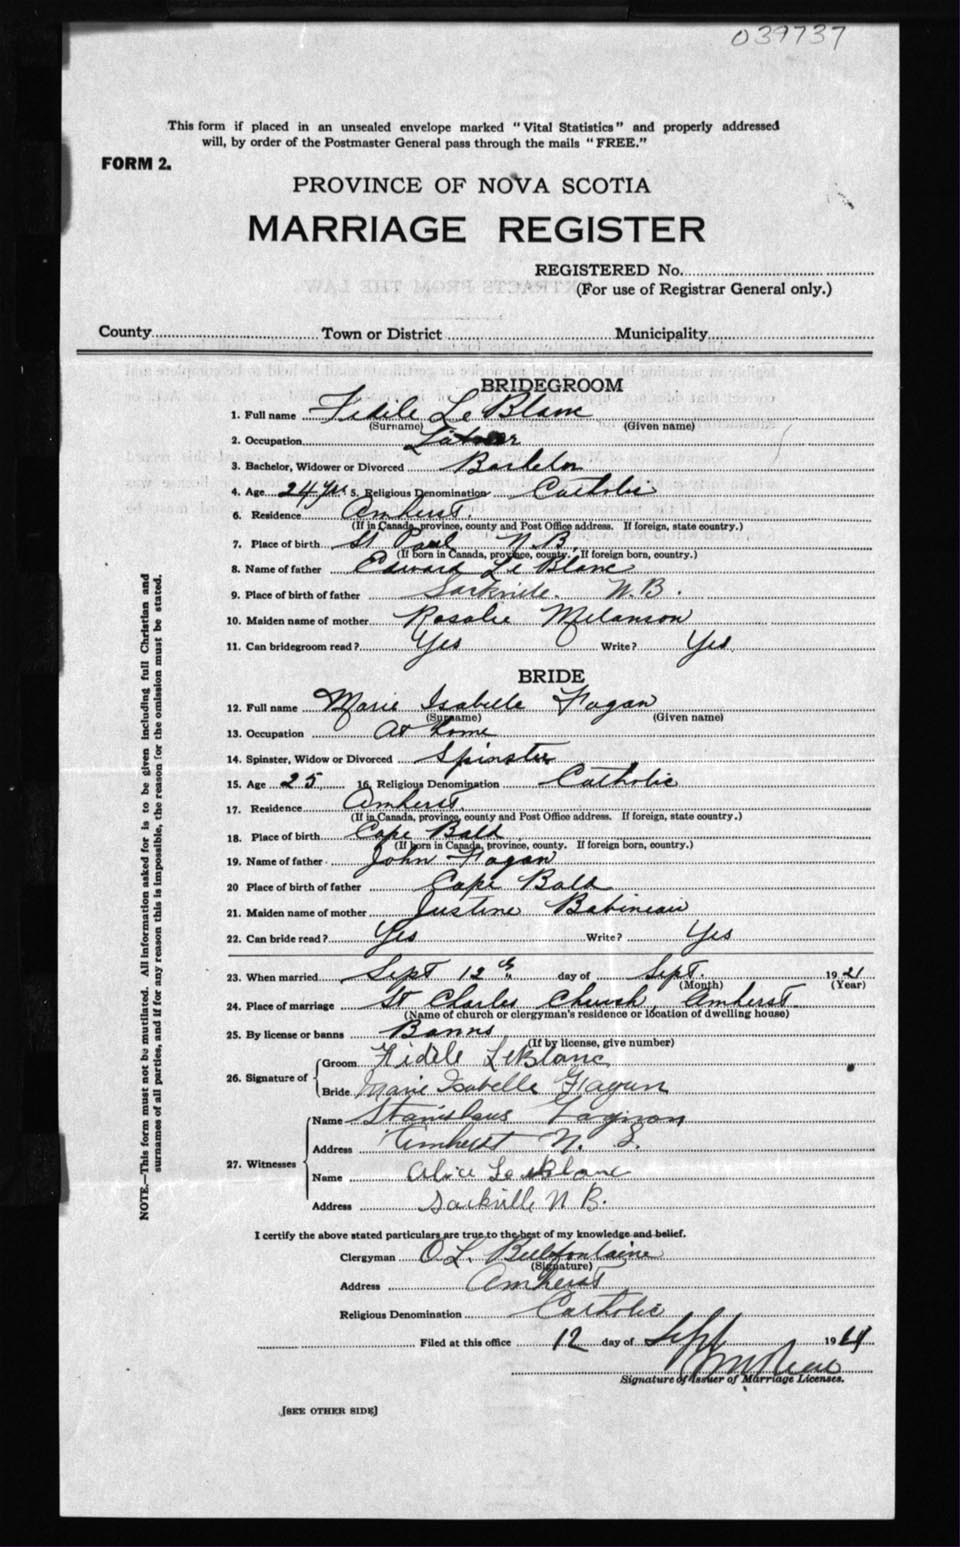 039737
This form if placed in an unsealed envelope marked "Vital Statistics" and properly addressed
will, by order of the Postmaster General pass through the mails "FREE."
FORM 2.
PROVINCE OF NOVA SCOTIA
MARRIAGE REGISTER
REGISTERED No.
(For use of Registrar General only.)
County Town or District Municipality
BRIDEGROOM
1. Full name Fidele Le Blanc
(Surname) (Given name)
2. Occupation Labour
3. Bachelor, Widower or Divorced Bachelor
4. Age 24 yrs 5. Religious Denomination Catholic
6. Residence Amherst.
(If in Canada, province, county and Post Office address. If foreign, state country.)
7. Place of birth St Paul N.B.
(If born in Canada, province, county. If foreign born, country.)
8. Name of father Edward Le Blanc
9. Place of birth of father Sackville. N.B.
10. Maiden name of mother Rosalie Melanson
11. Can bridegroom read? Yes Write? Yes
BRIDE
12. Full name Marie Isabelle Fagan
(Surname) (Given name)
13. Occupation At home
14. Spinster, Widow or Divorced Spinster
15. Age 25 16. Religious Denomination Catholic
17. Residence Amherst
(If in Canada, province, county and Post Office address. If foreign, state country.)
18. Place of birth Cape Bald
(If born in Canada, province, county. If foreign born, country.)
19. Name of father John Fagan
20 Place of birth of father Cape Bald
21. Maiden name of mother Justine Babineau
22. Can bride read? Yes Write? Yes
23. When married Sept 12th day of Sept. 1921
(Month) (Year)
24. Place of marriage St Charles Church, Amherst
(Name of church or clergyman's residence or location of dwelling house)
25. By license or banns Banns
(If by license, give number)
26. Signature of Groom Fidele LeBlanc
Bride Marie Isabelle Fagan
27. Witnesses Name Stanislaus Gagnon
Address Amherst N. S.
Name Alice Le Blanc
Address Sackville N B.
I certify the above stated particulars are true to the best of my knowledge and belief.
Clergyman O L.
(Signature)
Address Amherst
Religious Denomination Catholic
Filed at this office 12 day of Sept 19
Signature of Issuer of Marriage Licenses.
[SEE OTHER SIDE]
NOTE.—This form must not be mutilated. All information asked for is to be given including full Christian and
surnames of all parties, and if for any reason this is impossible, the reason for the omission must be stated.